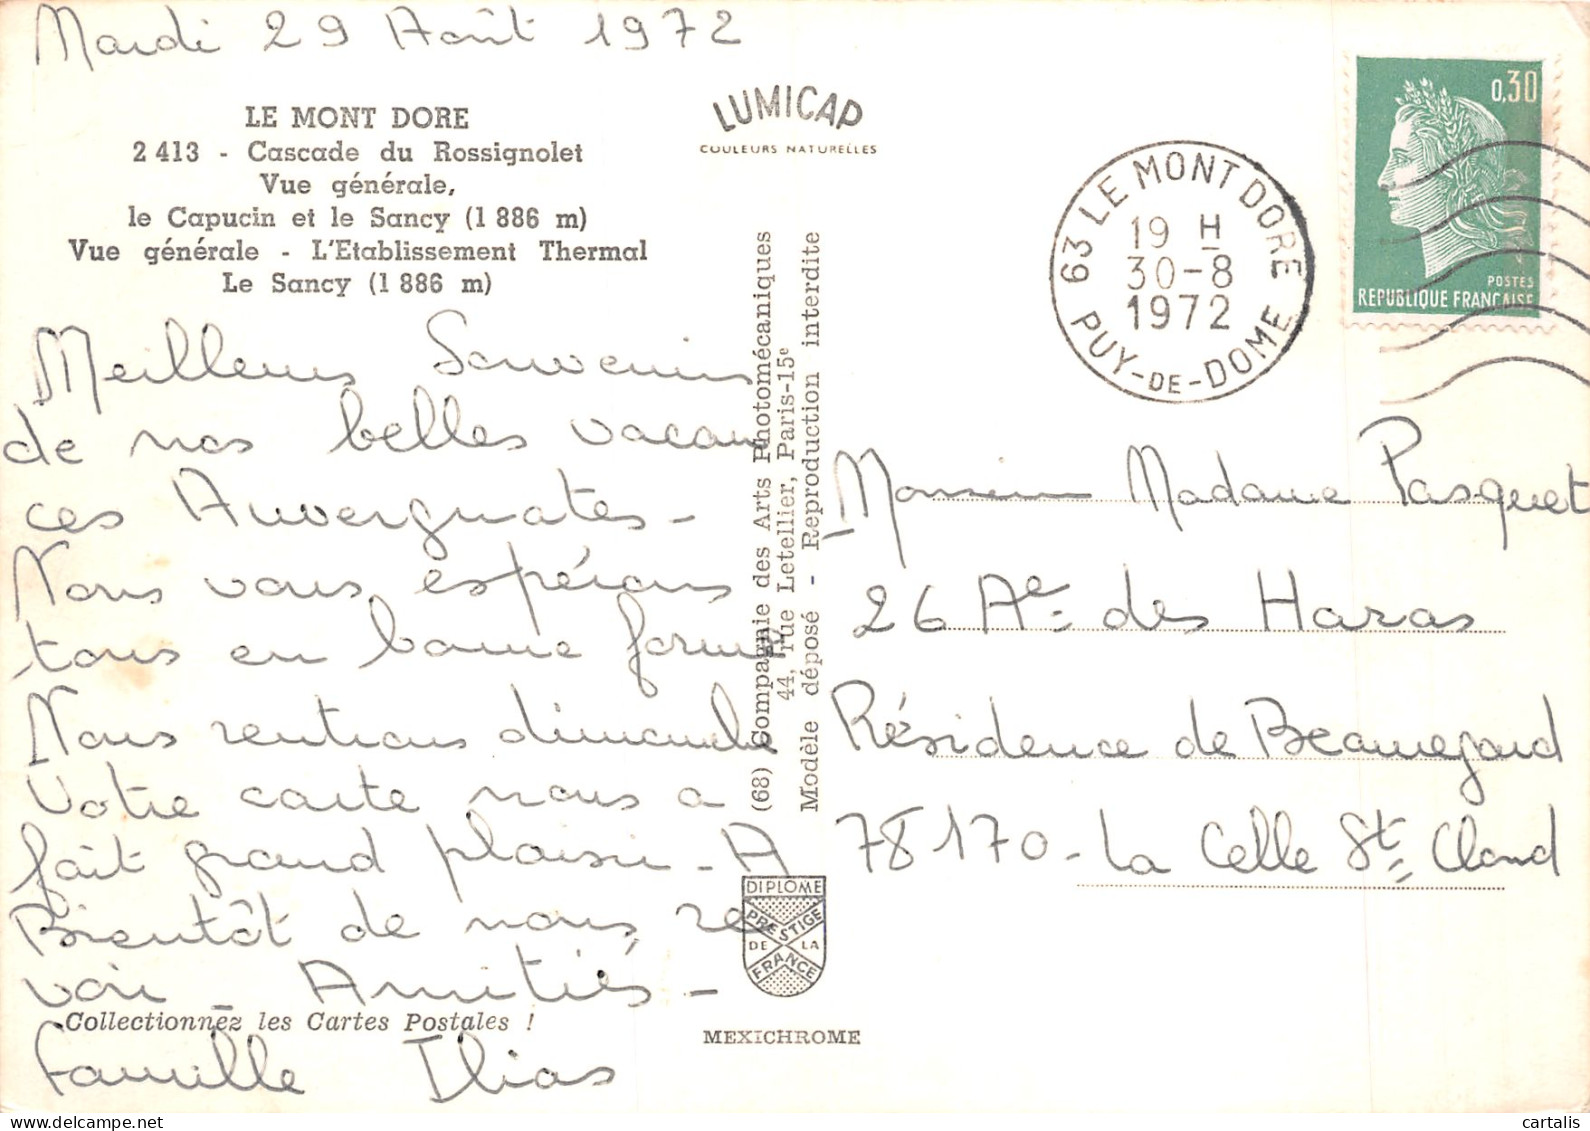 Mardi 29 Août 1972
LE MONT DORE
2 413 - Cascade du Rossignolet
Vue générale,
le Capucin et le Sancy (1 886 m)
Vue générale - L'Etablissement Thermal
Le Sancy (1 886 m)
Meilleurs Souvenirs
de nos belles vacan
ces Auvergnates -
Nous vous espérons
tous en bonne forme
Nous rentrons dimanche
Votre carte nous a
fait grand plaisir - A
Bientôt de nous re
voir - Amitiés -
Collectionnez les Cartes Postales !
Famille Ilias
LUMICAP
COULEURS NATURELLES
(68) Compagnie des Arts Photomécaniques
44, rue Letellier, Paris-15e
Modèle déposé - Reproduction interdite
DIPLOME
PRESTIGE
DE LA
FRANCE
MEXICHROME
63 LE MONT DORE
19 H
30-8
1972
PUY-DE-DOME
0,30
POSTES
REPUBLIQUE FRANCAISE
Monsieur Madame Pasquet
26 Ae des Haras
Résidence de Beauregard
78170 - La Celle St Cloud
cartalis
delcampe.net